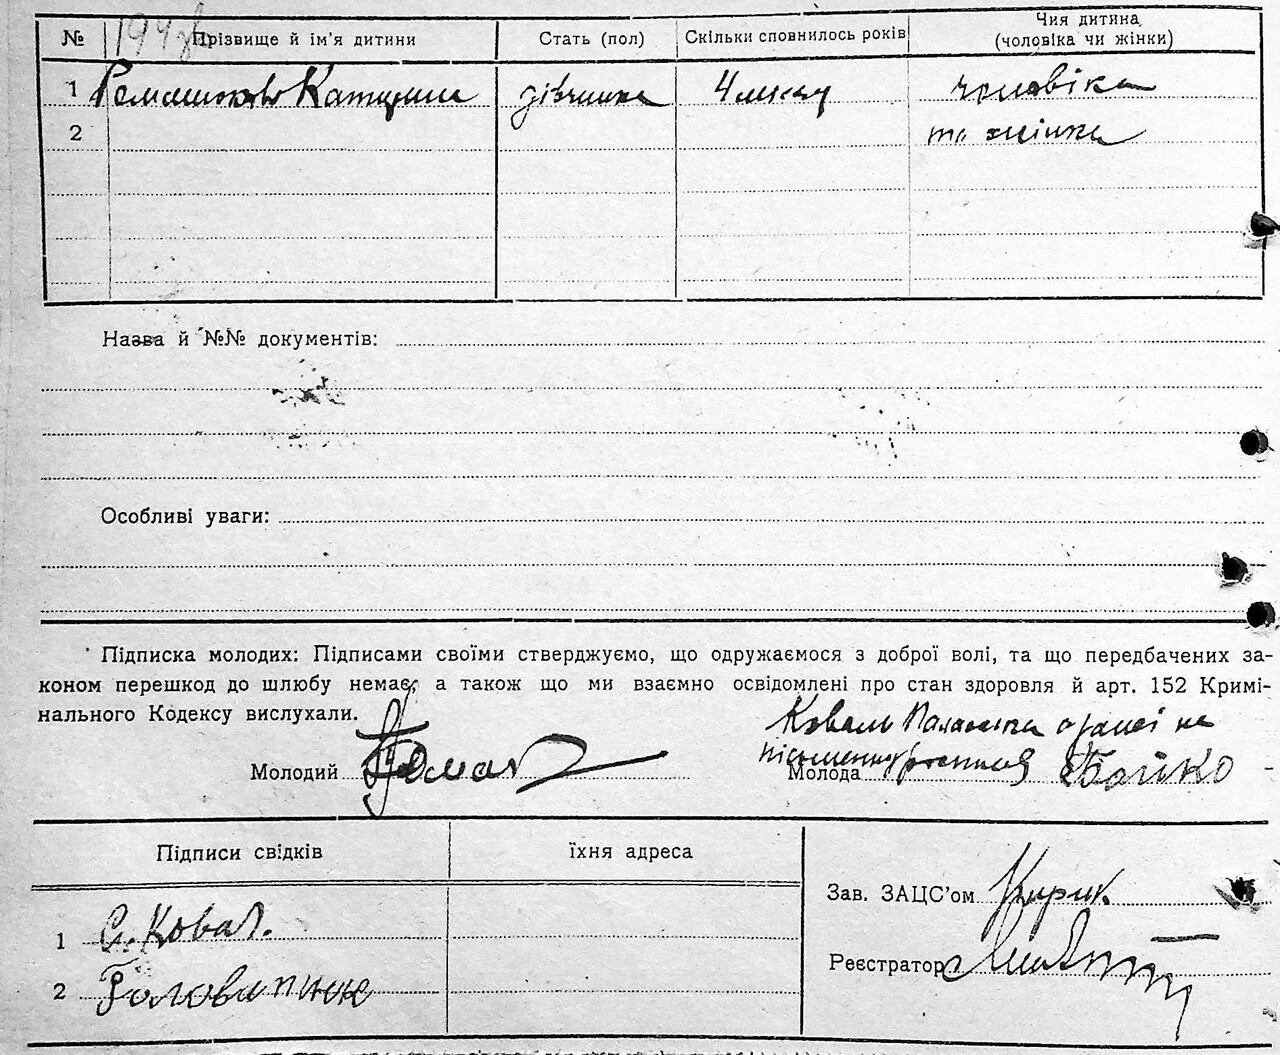 194
№ Прізвище й ім'я дитини Стать (пол) Скільки сповнилось років Чия дитина (чоловіка чи жінки)
1 Катерина дівчинка 4 чоловіка
2 та жінки
Назва й №№ документів:
Особливі уваги:
Підписка молодих: Підписами своїми стверджуємо, що одружаємося з доброї волі, та що передбачених за-
коном перешкод до шлюбу немає, а також що ми взаємно освідомлені про стан здоровля й арт. 152 Кримі-
нального Кодексу вислухали.
Коваль не
Молодий Молода Бойко
Підписи свідків їхня адреса
Зав. ЗАЦС'ом Кирик
1 С. Коваль
Реєстратор
2 Головатюк